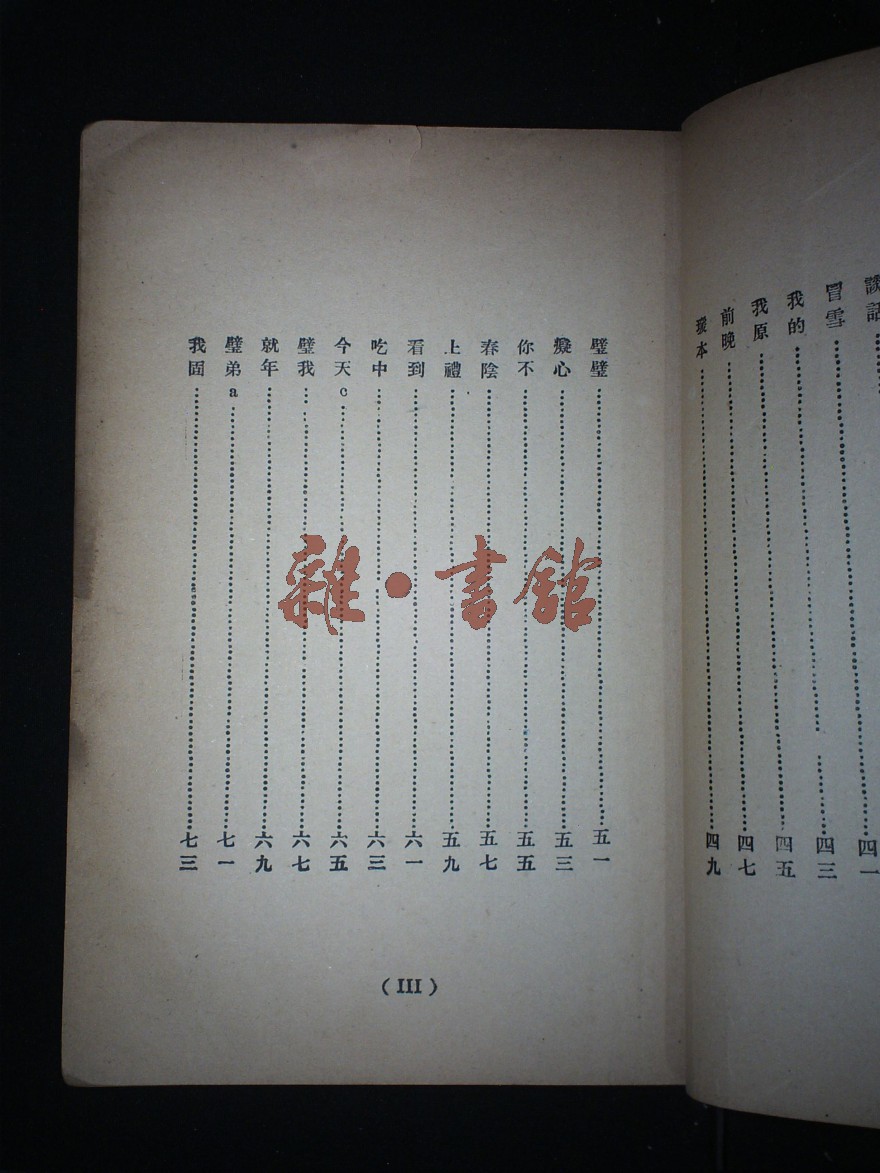 談話……四一
冒雪……四三
我的……四五
我原……四五
前晚……四七
璧本……四九
璧璧……五一
癡心……五三
你不……五五
春陰……五七
上禮……五九
看到……六一
吃中……六三
今天c……六五
璧我……六七
就年……六九
璧弟a……七一
我固……七三
(III)
雜·書館